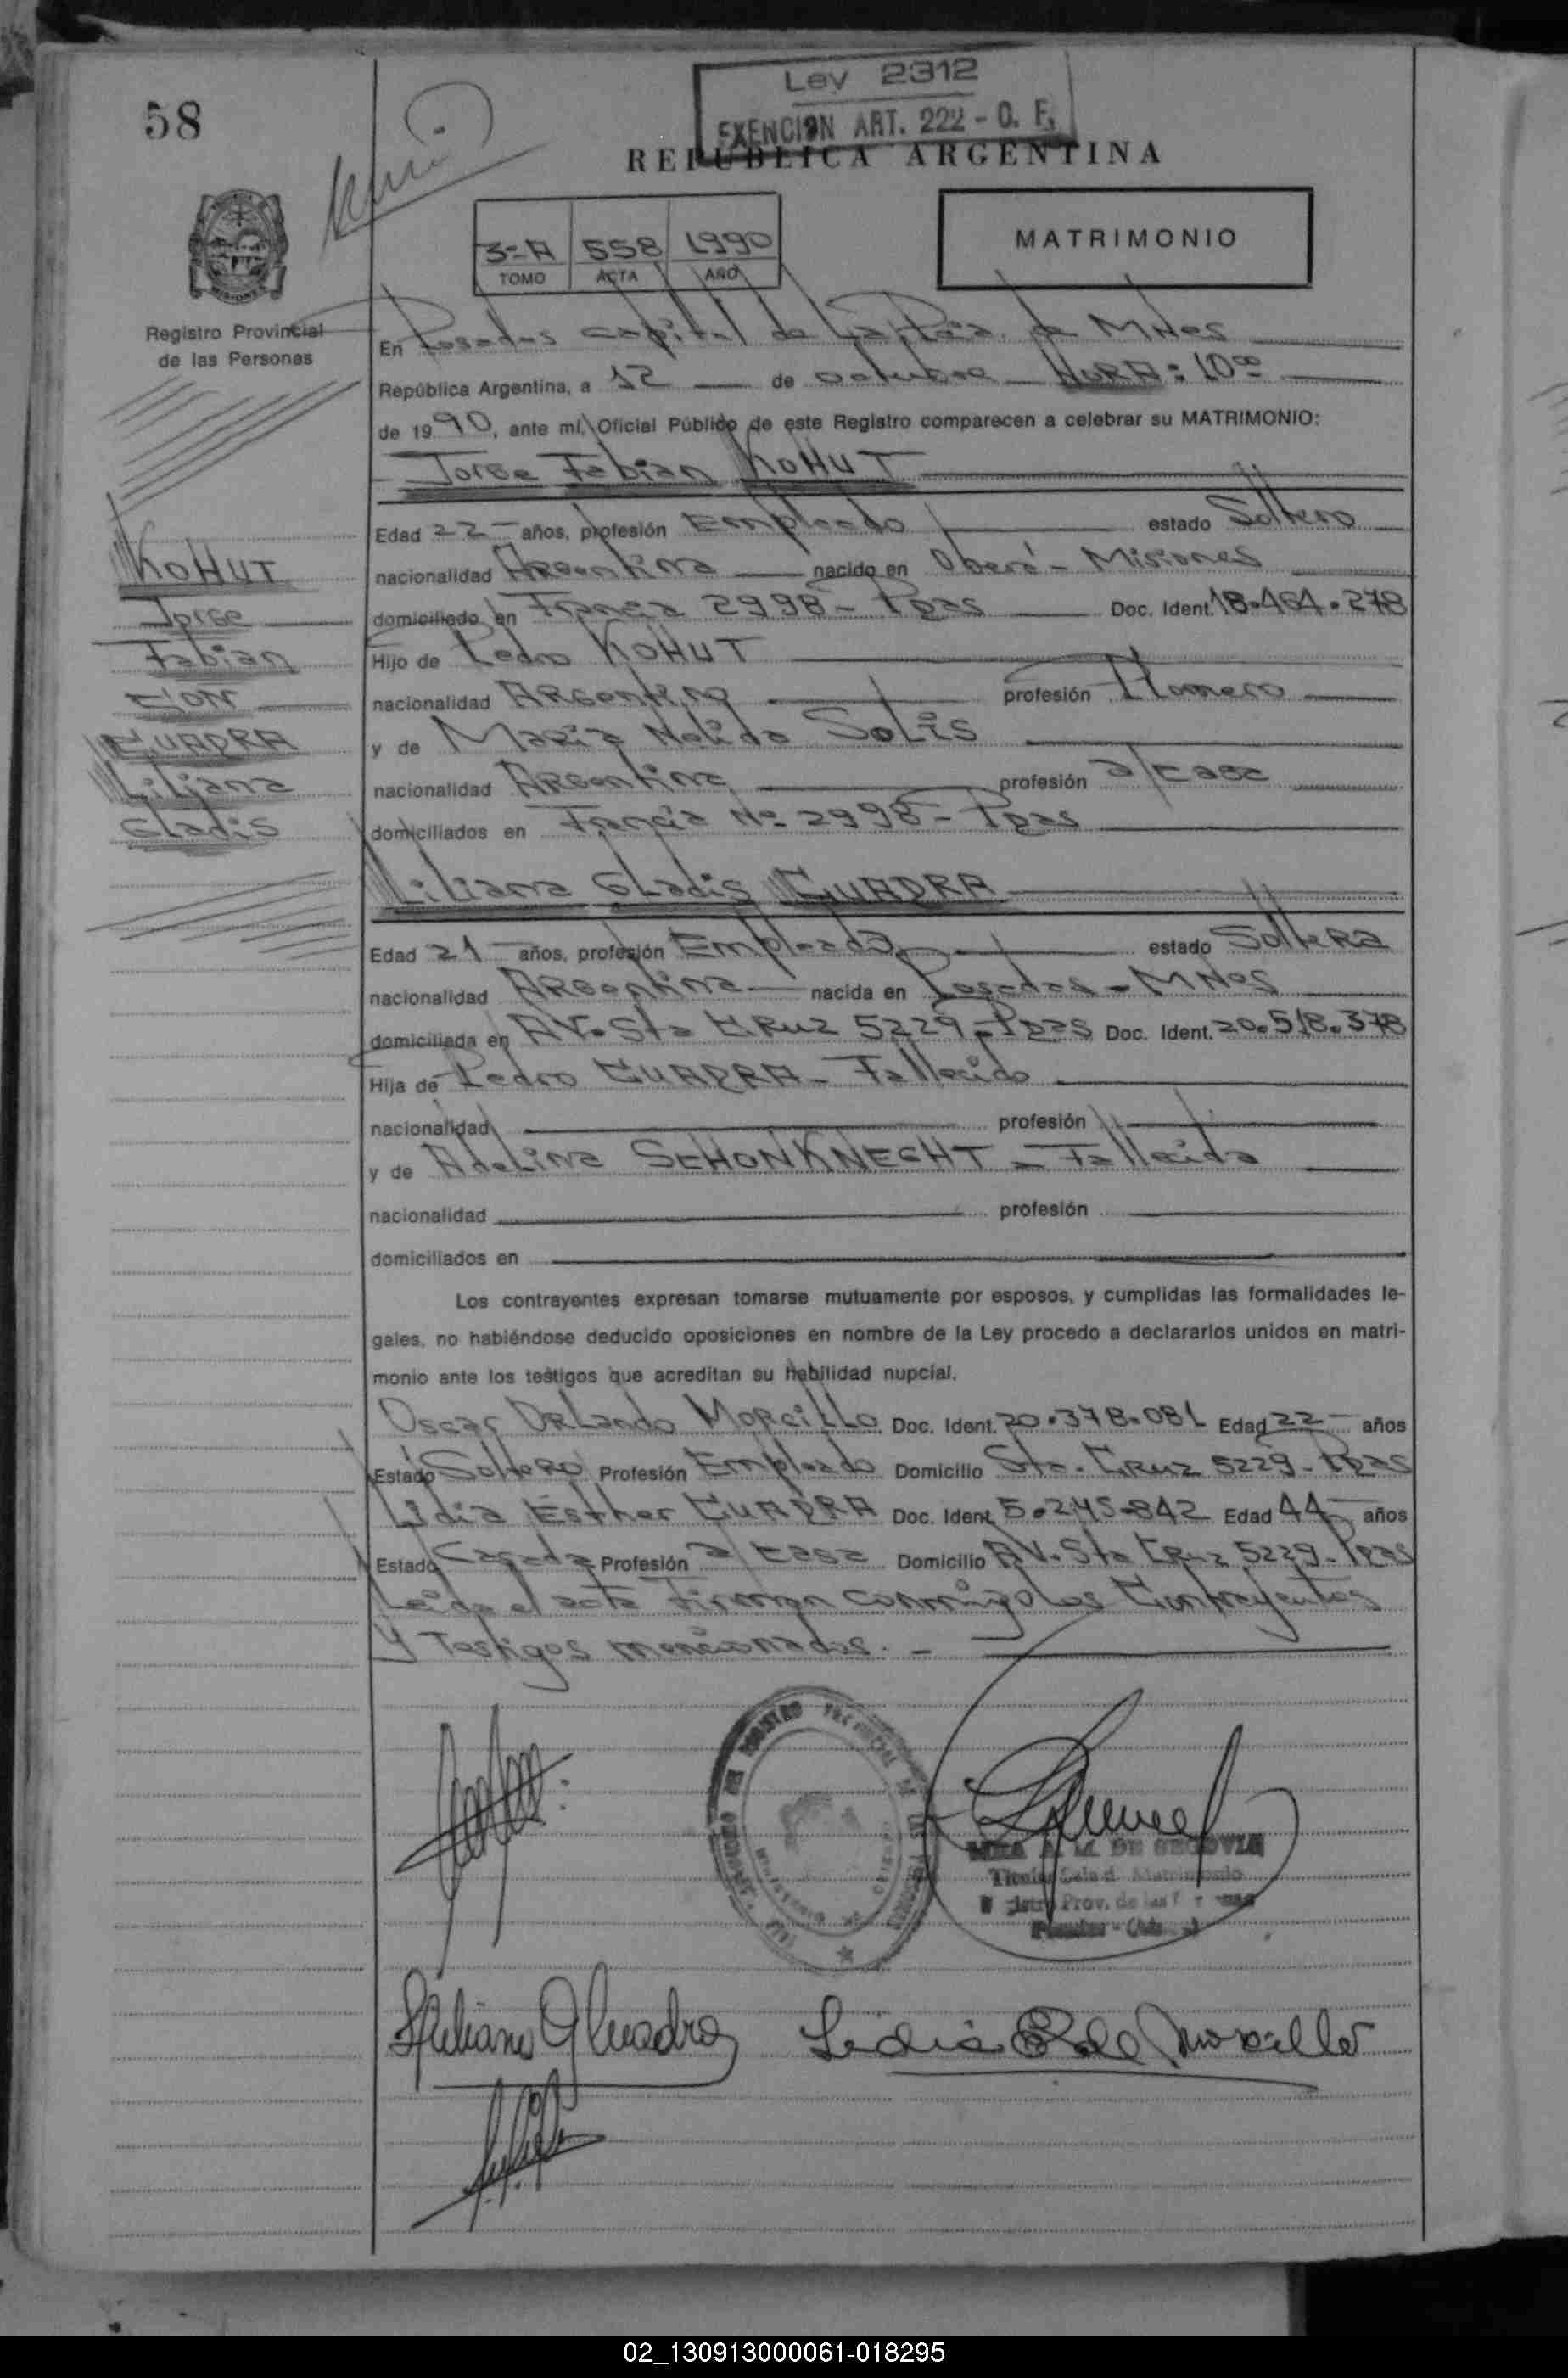 58
Ley 2312
EXENCION ART. 222 - O. F.
REPUBLICA ARGENTINA
3=A 558 1990
TOMO ACTA AÑO
MATRIMONIO
Registro Provincial
de las Personas
En Posadas capital de La Pcia. de MNes
República Argentina, a 12 de octubre HORA: 10°°
de 1990, ante mí, Oficial Público de este Registro comparecen a celebrar su MATRIMONIO:
Jorge Fabian KOHUT
Edad 22 años, profesión Empleado estado Soltero
nacionalidad Argentina nacido en Oberá - Misiones
domiciliado en Francia 2998 - Ppas Doc. Ident. 18.464.278
Hijo de Pedro KOHUT
nacionalidad Argentino profesión Plomero
y de Maria Nelida SOLIS
nacionalidad Argentina profesión a/casa
domiciliados en Francia Nº 2998 - Ppas
KOHUT
Jorge
Fabian
CON
CUADRA
Liliana
Gladis
Liliana Gladis CUADRA
Edad 21 años, profesión Empleada estado Soltera
nacionalidad Argentina nacida en Posadas - MNes
domiciliada en AV. Sta CRuz 5229 - Ppas Doc. Ident. 20.518.378
Hija de Pedro CUADRA - Fallecido
nacionalidad profesión
y de Adelina SCHONKNECHT - Fallecida
nacionalidad profesión
domiciliados en
Los contrayentes expresan tomarse mutuamente por esposos, y cumplidas las formalidades le-
gales, no habiéndose deducido oposiciones en nombre de la Ley procedo a declararlos unidos en matri-
monio ante los testigos que acreditan su habilidad nupcial.
Oscar Orlando Morcillo Doc. Ident. 20.378.081 Edad 22 años
Estado Soltero Profesión Empleado Domicilio Sta. CRuz 5229 - Ppas
Lidia Esther CUADRA Doc. Ident. 5.245.842 Edad 44 años
Estado Casada Profesión a/casa Domicilio AV. Sta CRuz 5229 - Ppas
Leida el acta Firman conmigo los Contrayentes
y Testigos mencionados. -
DE SEGOVIA
Titular Sala d. Matrimonio
Prov. de las
Liliana G Cuadra Lidia E C de Morcillo
02_130913000061-018295